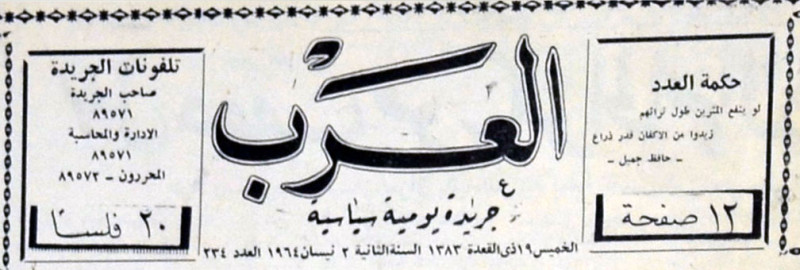 حكمة العدد
لو ينفع المثرين طول ثرائهم
زيدوا من الاكفان قدر ذراع
ـ حافظ جميل ـ
١٢ صفحة
العرب
جريدة يومية سياسية
الخميس ١٩ ذي القعدة ١٣٨٣ السنة الثانية ٢ نيسان ١٩٦٤ العدد ٢٣٤
تلفونات الجريدة
صاحب الجريدة
٨٩٥٧١
الادارة والمحاسبة
٨٩٥٧١
المحررون ـ ٨٩٥٧٢
٢٠ فلسًا